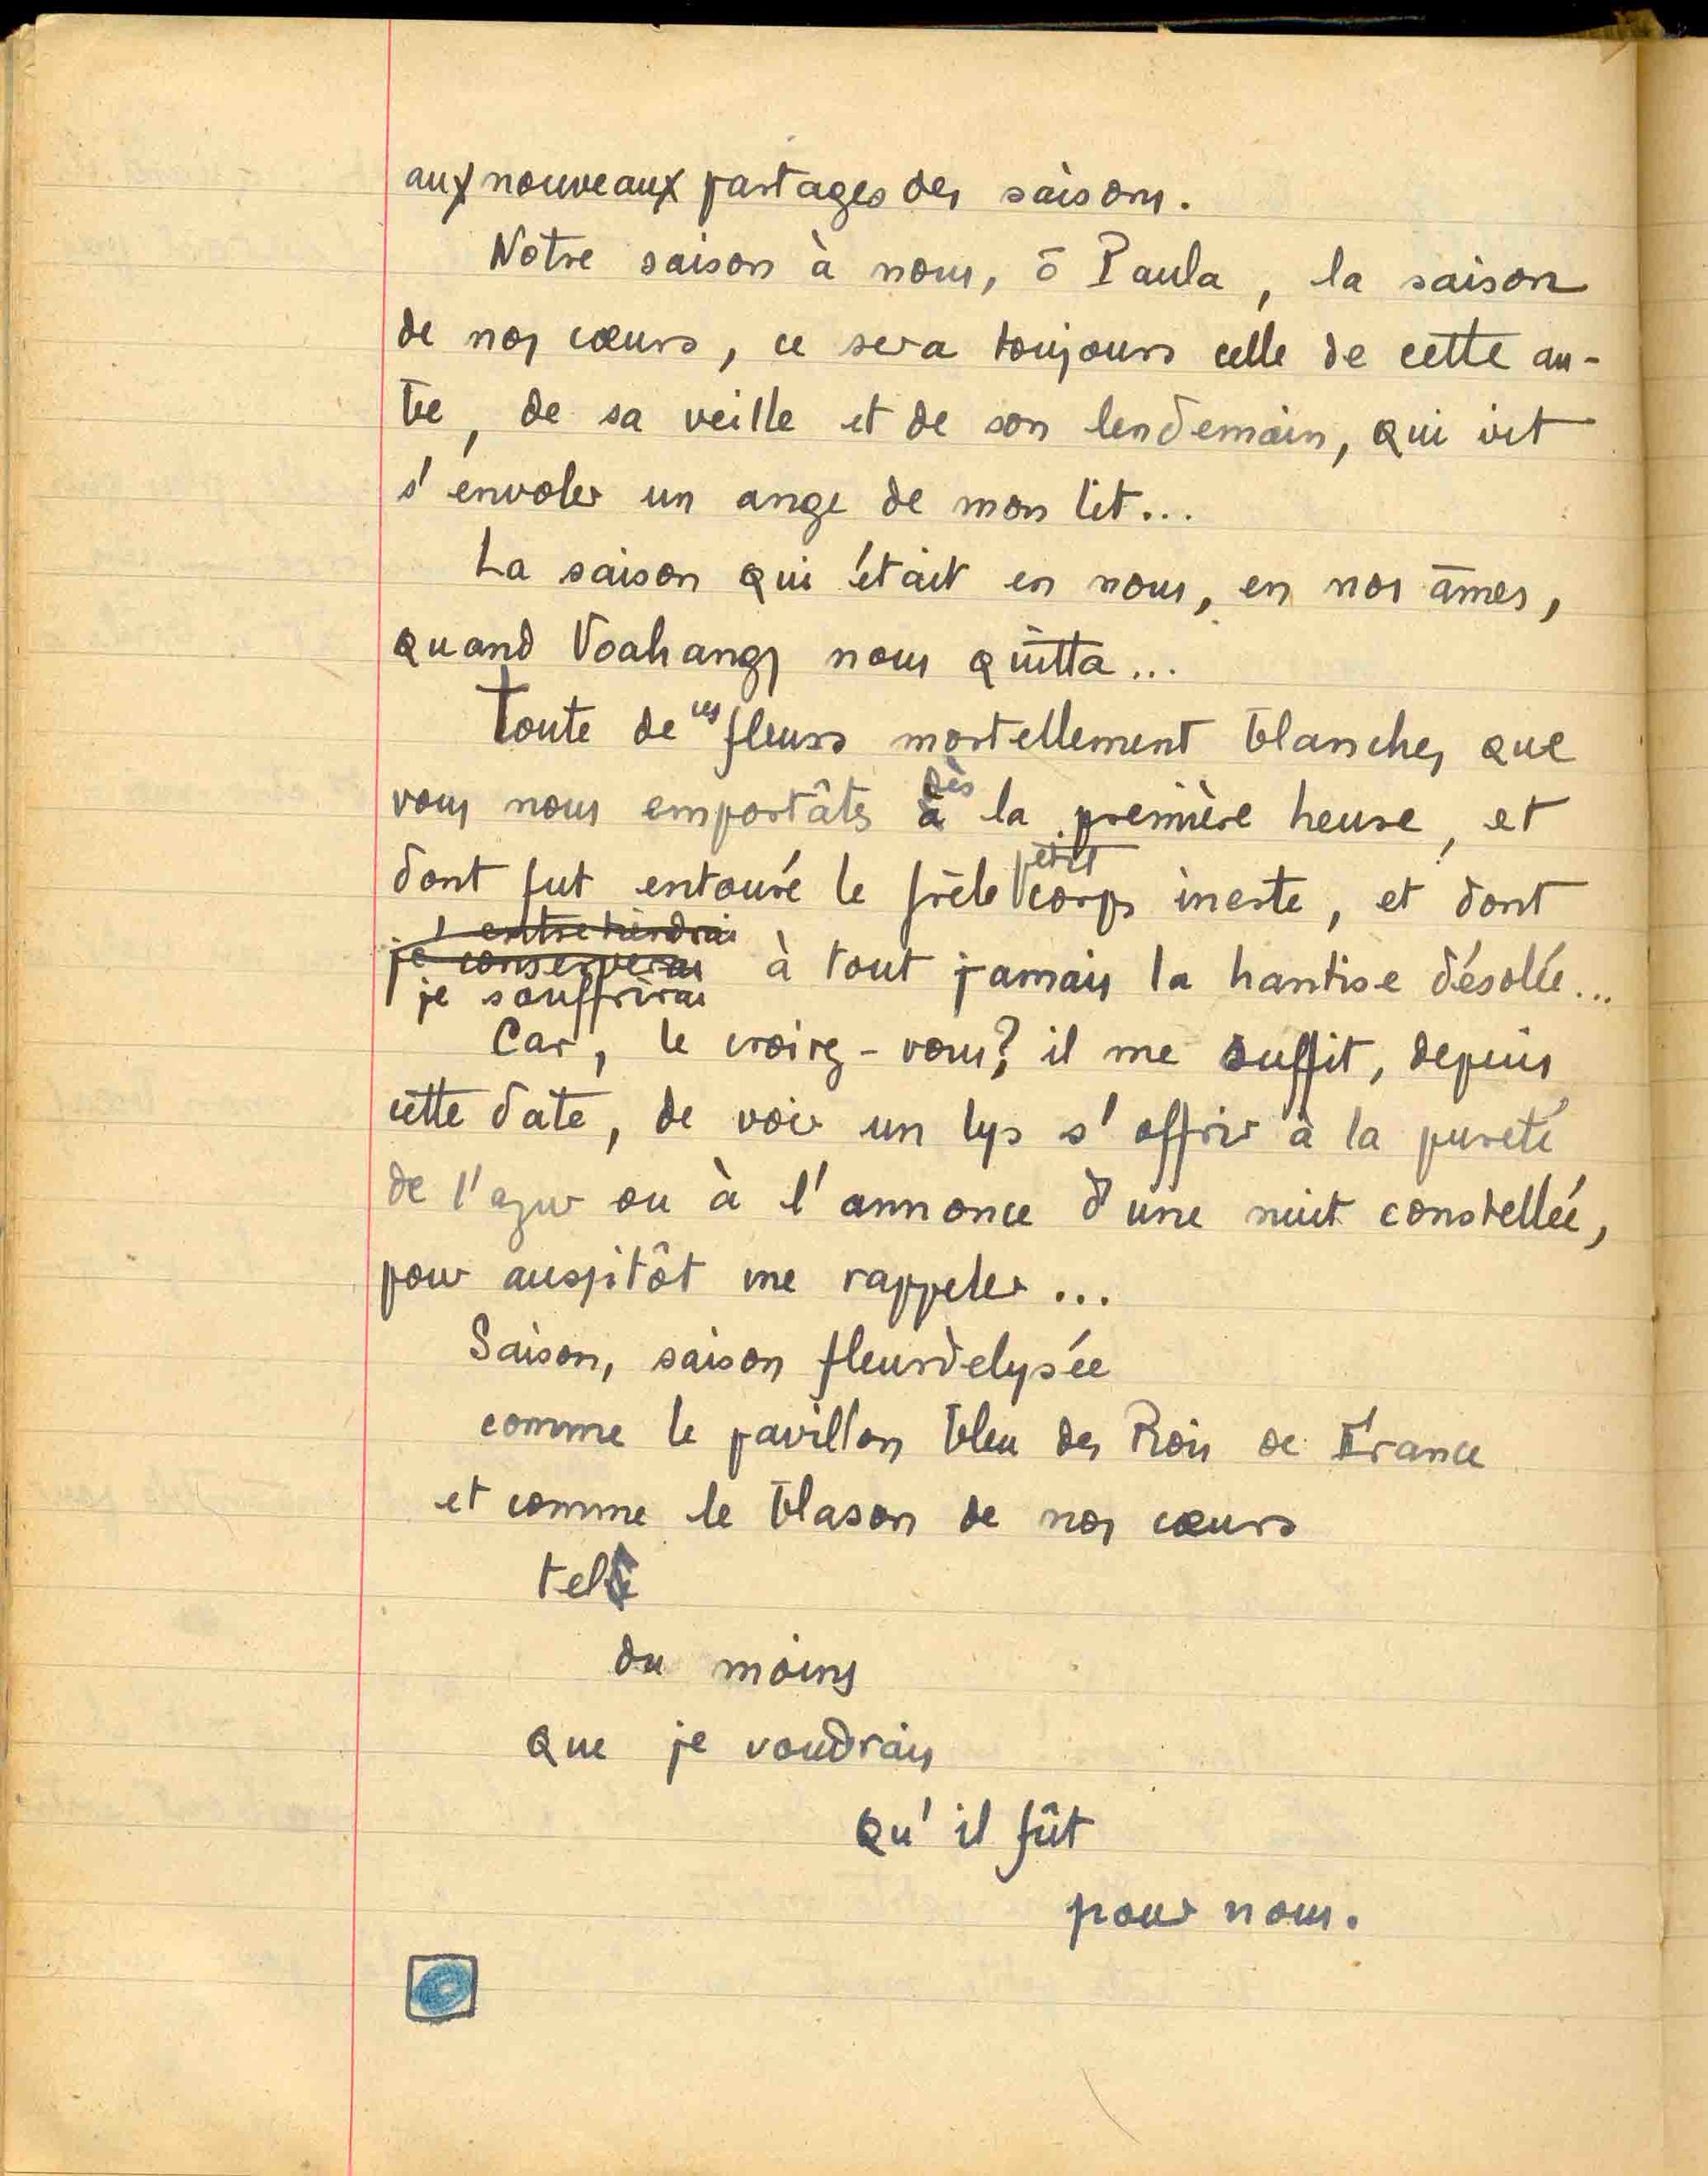 aux nouveaux partages des saisons.
Notre saison à nous, ô Paula, la saison
de nos cœurs, ce sera toujours celle de cette au-
tre, de sa veille et de son lendemain, qui vit
s'envoler un ange de mon lit...
La saison qui était en nous, en nos âmes,
quand Voahangy nous quitta...
Toute de ces fleurs mortellement blanches que
vous nous emportâtes dès à la première heure, et
dont fut entouré le frêle petit corps inerte, et dont
j'entretiendrai
je conserverai à tout jamais la hantise désolée...
je souffrirai
Car, le croirez-vous? il me suffit, depuis
cette date, de voir un lys s'offrir à la pureté
de l'azur ou à l'annonce d'une nuit constellée,
pour aussitôt me rappeler...
Saison, saison fleurdelysée
comme le pavillon bleu des Rois de France
et comme le blason de nos cœurs
tel
du moins
que je voudrais
qu'il fût
pour nous.